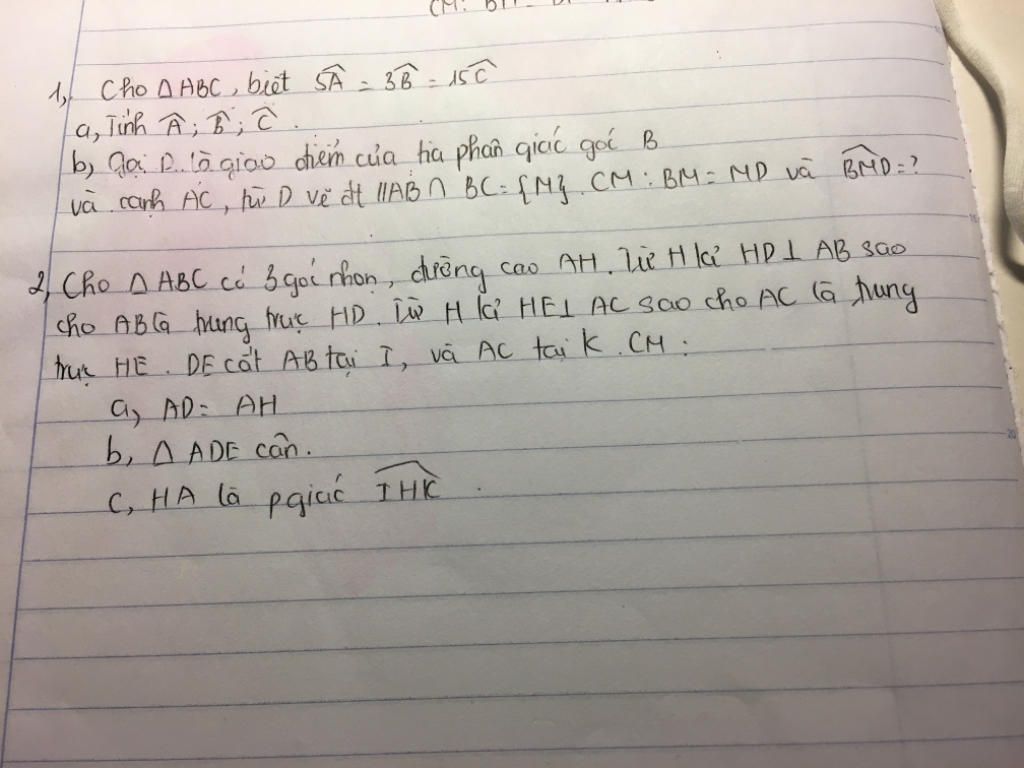 1, Cho △ABC, biết 5Â = 3B̂ = 15Ĉ
a, Tính Â; B̂; Ĉ.
b, Gọi D là giao điểm của tia phân giác góc B
và cạnh AC, từ D vẽ đt //AB ∩ BC = {M}. CM: BM = MD và B̂MD = ?
2, Cho △ABC có 3 góc nhọn, đường cao AH. Từ H kẻ HD ⊥ AB sao
cho AB là trung trực HD. Từ H kẻ HE ⊥ AC sao cho AC là trung
trực HE. DE cắt AB tại I, và AC tại K. CM:
a, AD = AH
b, △ADE cân.
c, HA là pgiác ÎHK.